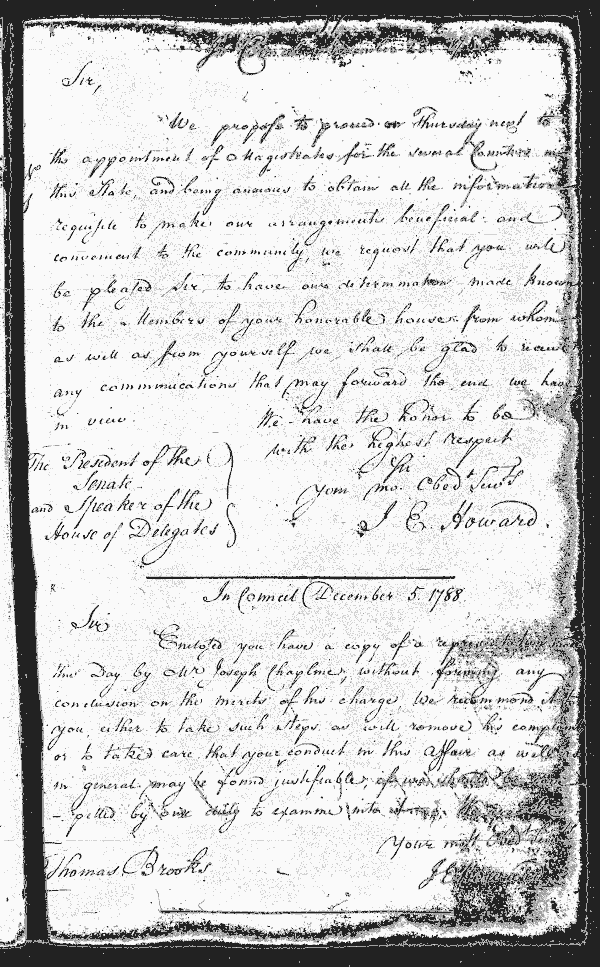 17
In Council December 28 1788
Sir,
We propose to proceed on Thursday next to
the appointment of Magistrates for the several Counties in
this State, and being anxious to obtain all the information
requisite to make our arrangements beneficial and
convenient to the community, we request that you will
be pleased Sir to have our determination made known
to the Members of your honorable house from whom
as well as from yourself we shall be glad to receive
any commnications that may forward the end we have
in view.
We have the honor to be
with the highest respect
Sir
Your mo. Obedt. Servts
J E. Howard.
The President of the
Senate
and Speaker of the
House of Delegates
In Council December 5. 1788
Sir
Enclosed you have a copy of a representation
this Day by Mr Joseph Chapline, without forming any
conclusion on the merits of his charge, We recommend it to
you, either to take such steps as will remove his complaint
or to take care that your conduct in this Affair as well
in general may be found justifiable,
-pelled by our duty to examine into
Your most Obedt
Thomas Brooks